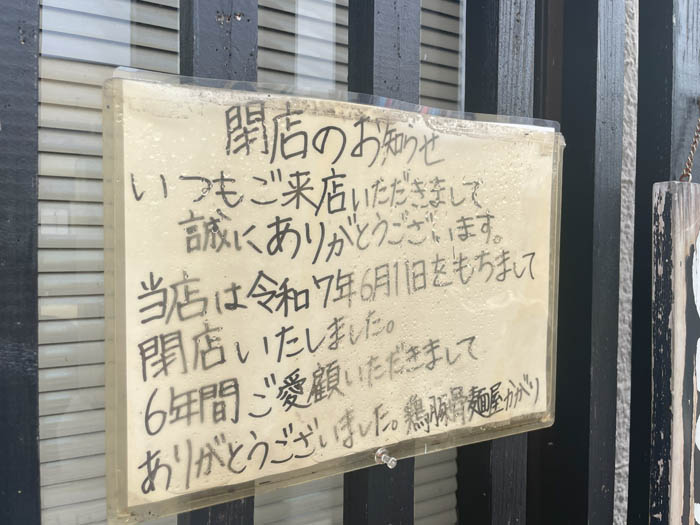 閉店のお知らせ
いつもご来店いただきまして
誠にありがとうございます。
当店は令和7年6月11日をもちまして
閉店いたしました。
6年間ご愛顧いただきまして
ありがとうございました。鶏豚骨麺屋かがり